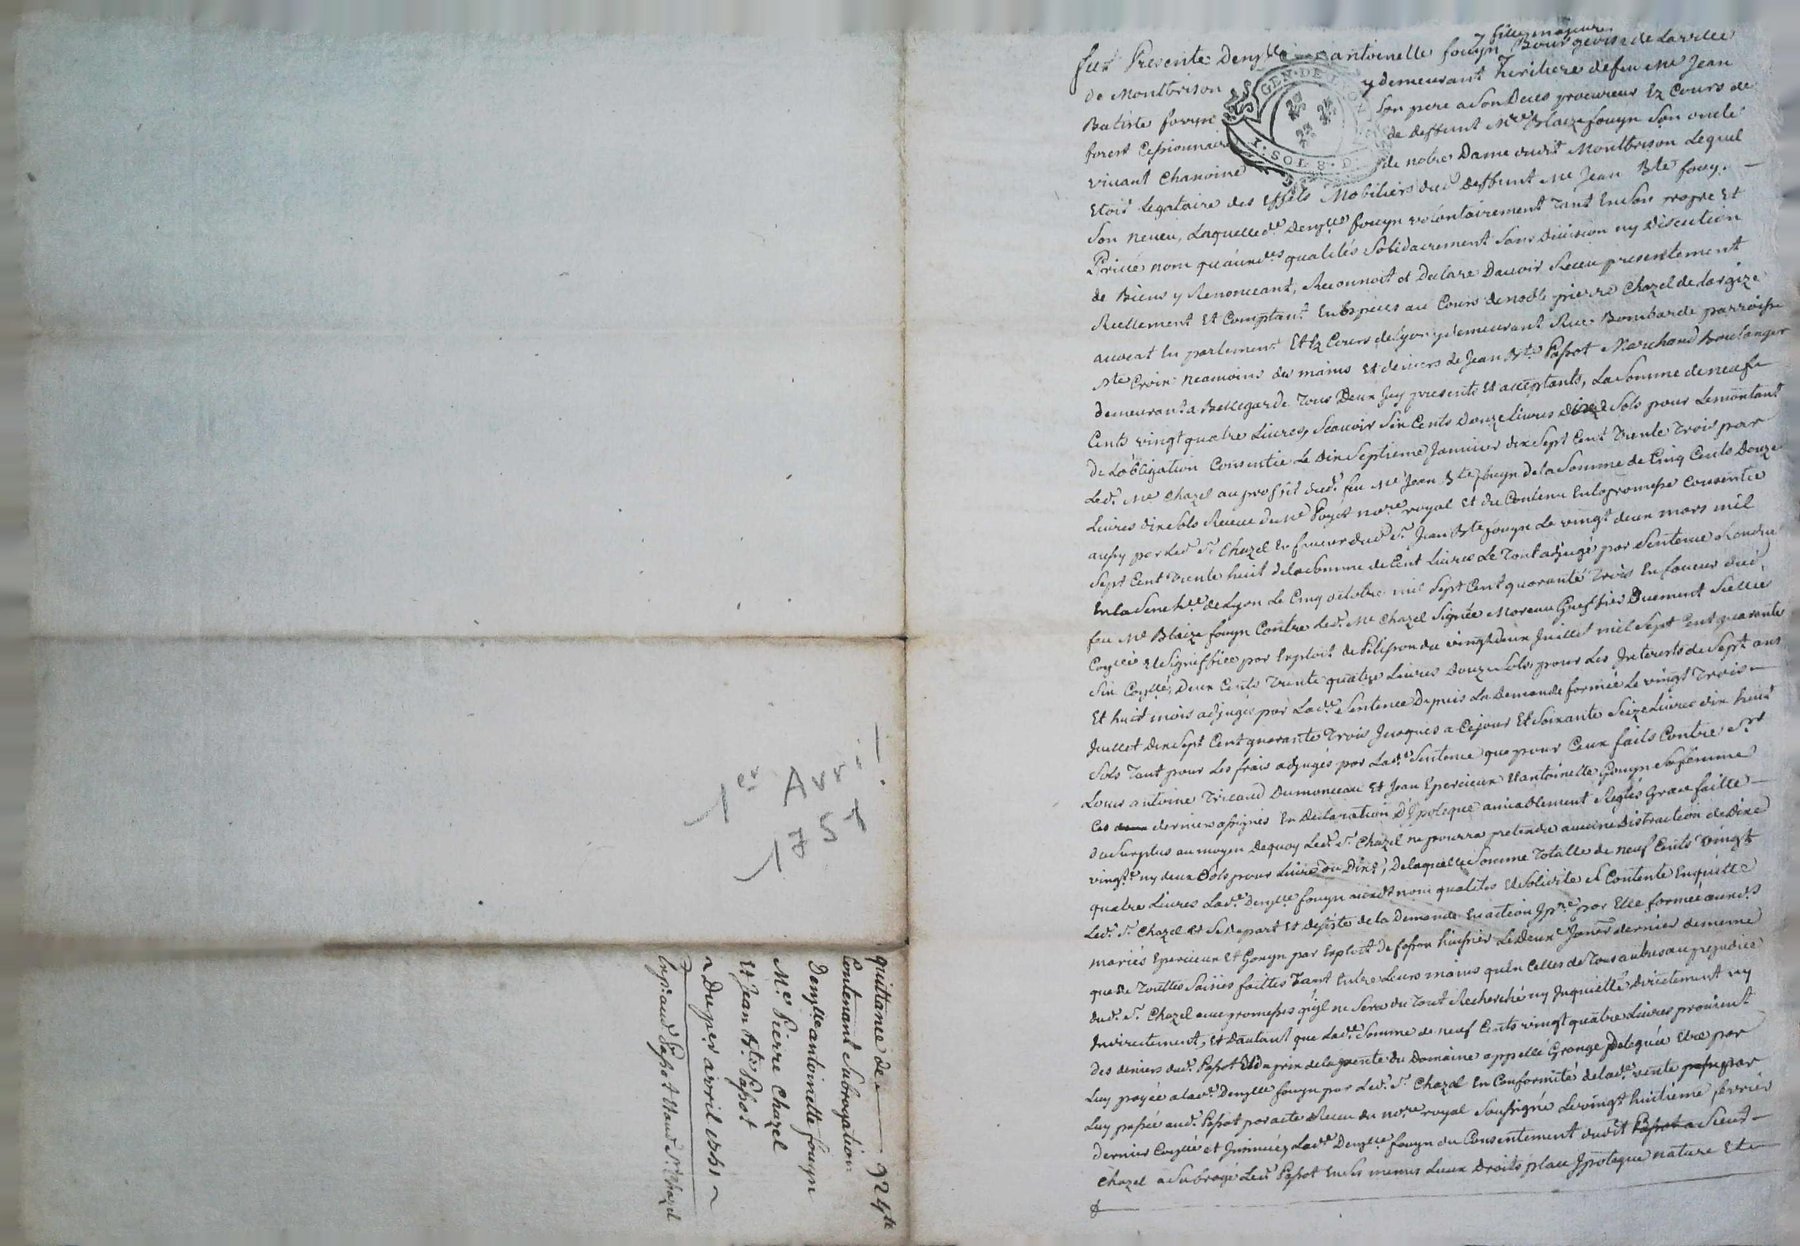 fille majeure
fut Presente Demlle antoinette fouyn Bourgeoise de La ville
de Montbrison y demeurant heritiere de feu Me Jean
Batiste fouyn son pere a son Deces procureur Ez Cours de
forest Cessionnaire de deffunt Mre Blaize fouyn son oncle
vivant Chanoine de notre Dame dudit Montbrison Lequel
Etoit Legataire des Effets Mobiliers dud. deffunt Me Jean Bte fouyn
son neveu, Laquelle de. Demlle fouyn volontairement tant En son propre Et
Privé nom qu'auxdes qualités solidairement sans Division ny Discution
de Biens y Renonceant, Reconnoit et Declare Davoir Receu presentement
Réellement Et Comptant En Especes au Cours de noble pierre Chazel de
avocat En parlement Et Ez Cours de Lyon y demeurant Rue Bombarde parroisse
Ste Croix neamoins des mains Et deniers de Jean Bte Passot Marchand Boulanger
demeurant a Bellegarde tous Deux Icy presents Et acceptants, La somme de neuf
Cents vingt quatre Livres, scavoir six Cents Douze Livres dix sols pour Le montant
De Lobligation Consentie Le Dix septieme Janvier dix sept Cent Trente Trois par
Led. Me Chazel au profit dud. feu Me Jean Bte fouyn de la somme de Cinq Cents Douze
Livres dix sols Receue du Me Poyet nore royal Et du Contenu En la promesse Consentie
aussy par Led. Sr. Chazel En faveur dud. Sr. Jean Bte fouyn Le vingt deux mars mil
sept Cent Trente huit de la somme de Cent Livres Le Tout adjugé par sentence Rendue
En la Senechée de Lyon Le Cinq octobre mil sept Cent quarante Trois En faveur dud.
feu Me Blaize fouyn Contre Led. Me Chazel signée Moreau Greffier Duement scellée
Copiée Et signiffiée par Exploit de Pelisson du vingt deux Juillet mil sept Cent quarante
six, Deux Cents Trente quatre Livres Douze sols pour Les Interests de sept ans
Et huit mois adjugés par Lade. sentence Depuis La Demande formée Le vingt Trois
Juillet Dix sept Cent quarante Trois Jusques a Cejour Et soixante seize Livres dix huit
sols Tant pour Les frais adjugés par Lade. sentence que pour Ceux faits Contre Sr
Louis antoine Tricaud Dumonceau Et Jean Epercieux Et antoinette Gouyn sa femme
Ces derniers assignés En Declaration D'Ipoteque amiablement Reglés Grace faitte
Du surplus au moyen Dequoy Led. Sr. Chazel ne pourra pretendre aucune Distraction de Dixe
vingte ny deux sols pour Livre ou Dixe, De laquelle somme Totalle de neuf Cents vingt
quatre Livres Lade. Demlle fouyn auxds nom qualités Et solidité se Contente Enquitte
Led. Sr. Chazel Et se Depart Et desiste de la Demande En action Ipre par Elle formée auxds
mariés Epercieux Et Gouyn par Exploit de huissier Le Deux Janer dernier demême
que de Touttes saisies faittes Tant Entre Leurs mains qu'En Celles de Tous autres au prejudice
dud. Sr. Chazel avec promesses qu'il ne sera du Tout Recherché ny Inquietté Directement ny
Indirectement, Et Dautant que Lade. somme de neuf Cents vingt quatre Livres provient
des deniers dud. Passot Et du prix de la vente du Domaine appellé Grange Deleguée Etre par
Luy payée a lade. Demlle fouyn par Led. Sr. Chazel En Conformité de lade. vente passée par
Luy passée aud. Passot par acte Receu du nore royal soussigné Le vingt huitieme fevrier
dernier Copiée et Insinuée, Lade. Demlle fouyn du Consentement dudit Sieur
Chazel a subrogé Led. Passot En ses mêmes Lieux Droits place Ipoteque nature Et
GEN. DE LYON
1. SOL 8. D.
1er Avril
1751
quittance de 924lt
Contenant subrogation
Demlle antoinette fouyn
Me. Pierre Chazel
Et Jean Bte. Passot
Du per avril 1751